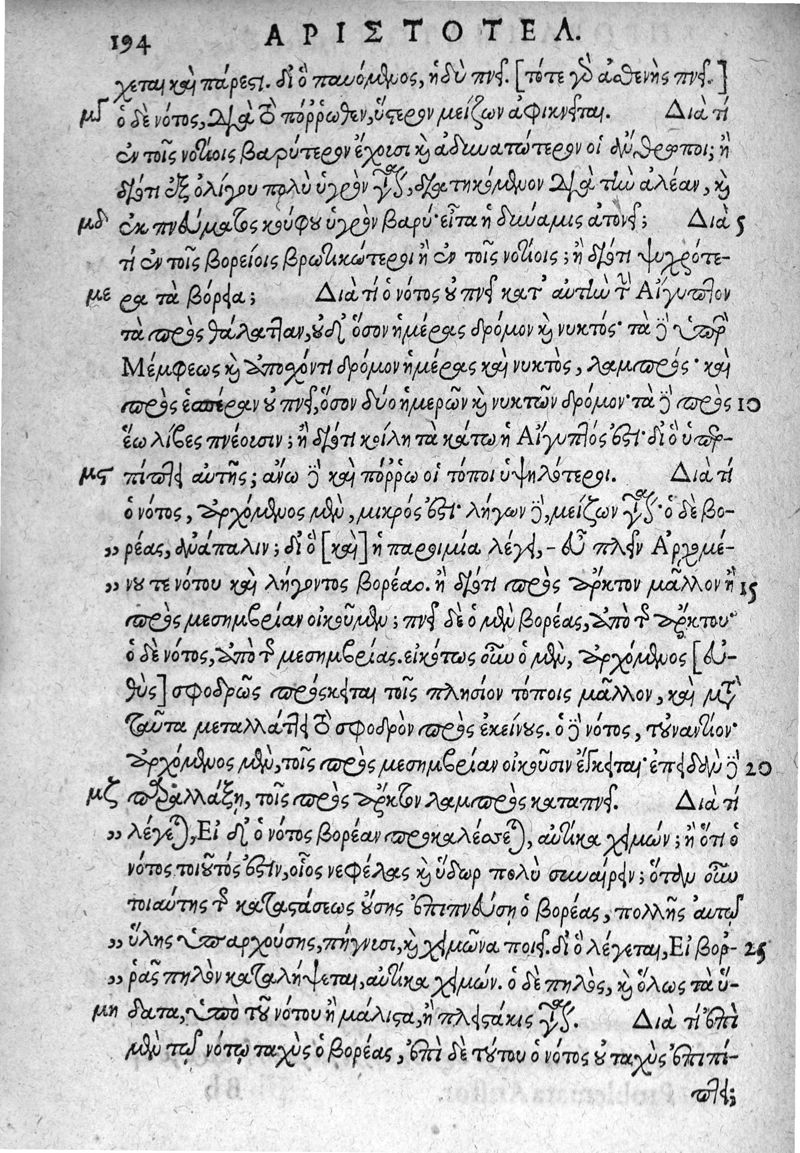 194 ΑΡΙΣΤΟΤΕΛ.
χεται καὶ πάρεστι. διὸ παυόμενος, ἡδὺ πνεῖ. [τότε γὸ ἀσθενὴς πνεῖ.]
μγ ὁ δὲ νότος, διὰ τὸ πόῤῥωθεν, ὕστερον μείζων ἀφικνεῖται. Διὰ τί
ἐν τοῖς νοτίοις βαρύτερον ἔχουσι καὶ ἀδυνατώτερον οἱ ἄνθρωποι; ἢ
διότι ἐξ ὀλίγου πολὺ ὑγρὸν γίνεται, διατηκόμενον διὰ τὴν ἀλέαν, καὶ
μδ ἐκ πνεύματος κούφου ὑγρὸν βαρύ· εἶτα ἡ δύναμις ἀτονεῖ; Διὰ 5
τί ἐν τοῖς βορείοις βρωτικώτεροι ἢ ἐν τοῖς νοτίοις; ἢ διότι ψυχρότε-
με ρα τὰ βόρεια; Διὰ τί ὁ νότος οὐ πνεῖ κατ' αὐτὴν τὴν Αἴγυπτον
τὰ πρὸς θάλατταν, οὐδ' ὅσον ἡμέρας δρόμον καὶ νυκτός· τὰ δὲ ὑπὲρ
Μέμφεως καὶ ἀποσχόντι δρόμον ἡμέρας καὶ νυκτὸς, λαμπρός· καὶ
πρὸς ἑσπέραν οὐ πνεῖ, ὅσον δύο ἡμερῶν καὶ νυκτῶν δρόμον· τὰ δὲ πρὸς 10
ἕω λίβες πνέουσιν; ἢ διότι κοίλη τὰ κάτω ἡ Αἴγυπτός ἐστι· διὸ ὑπερ-
μς πίπτει αὐτῆς; ἄνω δὲ καὶ πόῤῥω οἱ τόποι ὑψηλότεροι. Διὰ τί
ὁ νότος, ἀρχόμενος μὲν, μικρός ἐστι· λήγων δὲ, μείζων γίνεται· ὁ δὲ βο-
„ ρέας, ἀνάπαλιν; διὸ [καὶ] ἡ παροιμία λέγει, - εὖ πλεῖν Ἀρχομέ-
„ νου τε νότου καὶ λήγοντος βορέαο. ἢ διότι πρὸς ἄρκτον μᾶλλον ἢ 15
πρὸς μεσημβρίαν οἰκοῦμεν; πνεῖ δὲ ὁ μὲν βορέας, ἀπὸ τῆς ἄρκτου·
ὁ δὲ νότος, ἀπὸ τῆς μεσημβρίας. εἰκότως οὖν ὁ μὲν, ἀρχόμενος [εὐ-
θὺς] σφοδρῶς πρόσκειται τοῖς πλησίον τόποις μᾶλλον, καὶ μετὰ
ταῦτα μεταλλάττει τὸ σφοδρὸν πρὸς ἐκείνους. ὁ δὲ νότος, τοὐναντίον·
ἀρχόμενος μὲν, τοῖς πρὸς μεσημβρίαν οἰκοῦσιν ἔγκειται· ἐπειδὰν δὲ 20
μζ παραλλάξῃ, τοῖς πρὸς ἄρκτον λαμπρὸς καταπνεῖ. Διὰ τί
„ λέγεται, Εἰ δ' ὁ νότος βορέαν προκαλέσεται, αὐτίκα χειμών; ἢ ὅτι ὁ
νότος τοιοῦτός ἐστιν, οἷος νεφέλας καὶ ὕδωρ πολὺ συναίρειν; ὅταν οὖν
τοιαύτης τῆς καταστάσεως οὔσης ἐπιπνεύσῃ ὁ βορέας, πολλῆς αὐτῷ
„ ὕλης ὑπαρχούσης, πήγνυσι, καὶ χειμῶνα ποιεῖ. διὸ λέγεται, Εἰ βορ- 25
„ ρᾶς πηλὸν καταλήψεται, αὐτίκα χειμών. ὁ δὲ πηλὸς, καὶ ὅλως τὰ ὕ-
μη δατα, ὑπὸ τοῦ νότου ἢ μάλιστα, ἢ πλειστάκις γίνεται. Διὰ τί ἐπὶ
μὲν τῷ νότῳ ταχὺς ὁ βορέας, ἐπὶ δὲ τούτου ὁ νότος οὐ ταχὺς ἐπιπί-
πτει;